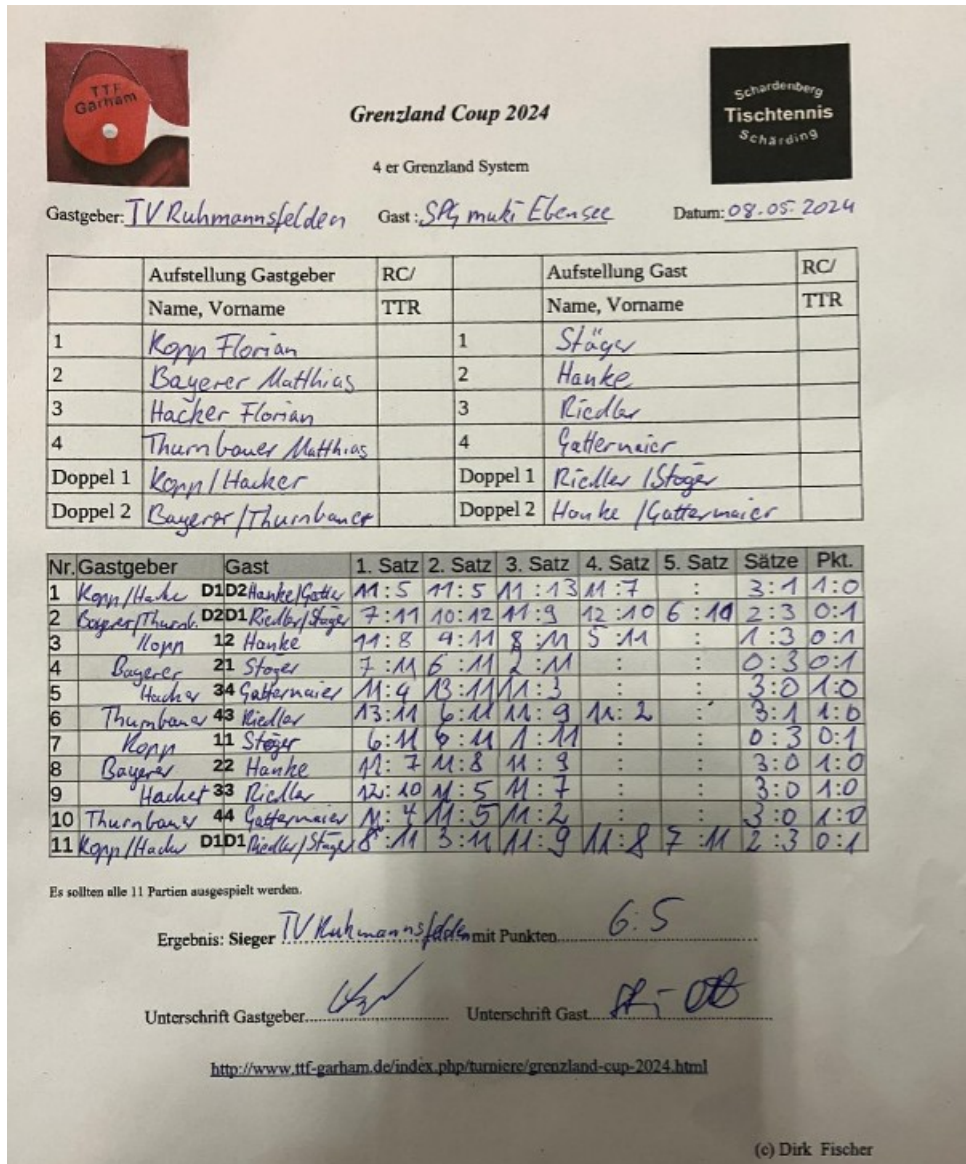 TTF
Garham
Schardenberg
Tischtennis
Schärding
Grenzland Coup 2024
4 er Grenzland System
Gastgeber: TV Ruhmannsfelden Gast: SPG muki Ebensee Datum: 08.05.2024
Aufstellung Gastgeber RC/ Aufstellung Gast RC/
Name, Vorname TTR Name, Vorname TTR
1 Kopp Florian 1 Stöger
2 Bayerer Matthias 2 Hanke
3 Hacker Florian 3 Riedler
4 Thurnbauer Matthias 4 Gattermaier
Doppel 1 Kopp/Hacker Doppel 1 Riedler/Stöger
Doppel 2 Bayerer/Thurnbauer Doppel 2 Hanke/Gattermaier
Nr. Gastgeber Gast 1. Satz 2. Satz 3. Satz 4. Satz 5. Satz Sätze Pkt.
1 Kopp/Hacke D1 D2 Hanke/Gatter 11:5 11:5 11:13 11:7 : 3:1 1:0
2 Bayerer/Thurnb. D2 D1 Riedler/Stöger 7:11 10:12 11:9 12:10 6:10 2:3 0:1
3 Kopp 12 Hanke 11:8 9:11 8:11 5:11 : 1:3 0:1
4 Bayerer 21 Stöger 7:11 6:11 2:11 : : 0:3 0:1
5 Hacker 34 Gattermaier 11:4 13:11 11:3 : : 3:0 1:0
6 Thurnbauer 43 Riedler 13:11 6:11 11:9 11:2 : 3:1 1:0
7 Kopp 11 Stöger 6:11 6:11 1:11 : : 0:3 0:1
8 Bayerer 22 Hanke 11:7 11:8 11:9 : : 3:0 1:0
9 Hacker 33 Riedler 12:10 11:5 11:7 : : 3:0 1:0
10 Thurnbauer 44 Gattermaier 11:4 11:5 11:2 : : 3:0 1:0
11 Kopp/Hacker D1 D1 Riedler/Stöger 8:11 3:11 11:9 11:8 7:11 2:3 0:1
Es sollten alle 11 Partien ausgespielt werden.
Ergebnis: Sieger TV Ruhmannsfelden mit Punkten 6:5
Unterschrift Gastgeber Unterschrift Gast
http://www.ttf-garham.de/index.php/turniere/grenzland-cup-2024.html
(c) Dirk Fischer